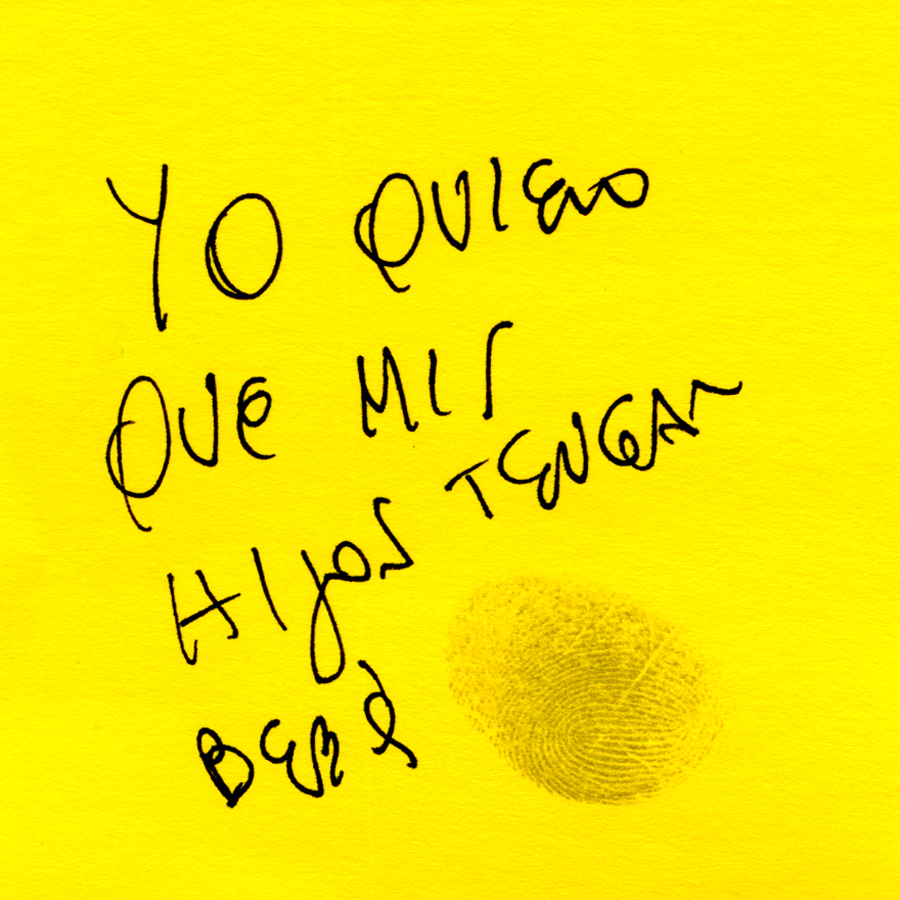 YO QUIERO
QUE MIS
HIJOS TENGAN